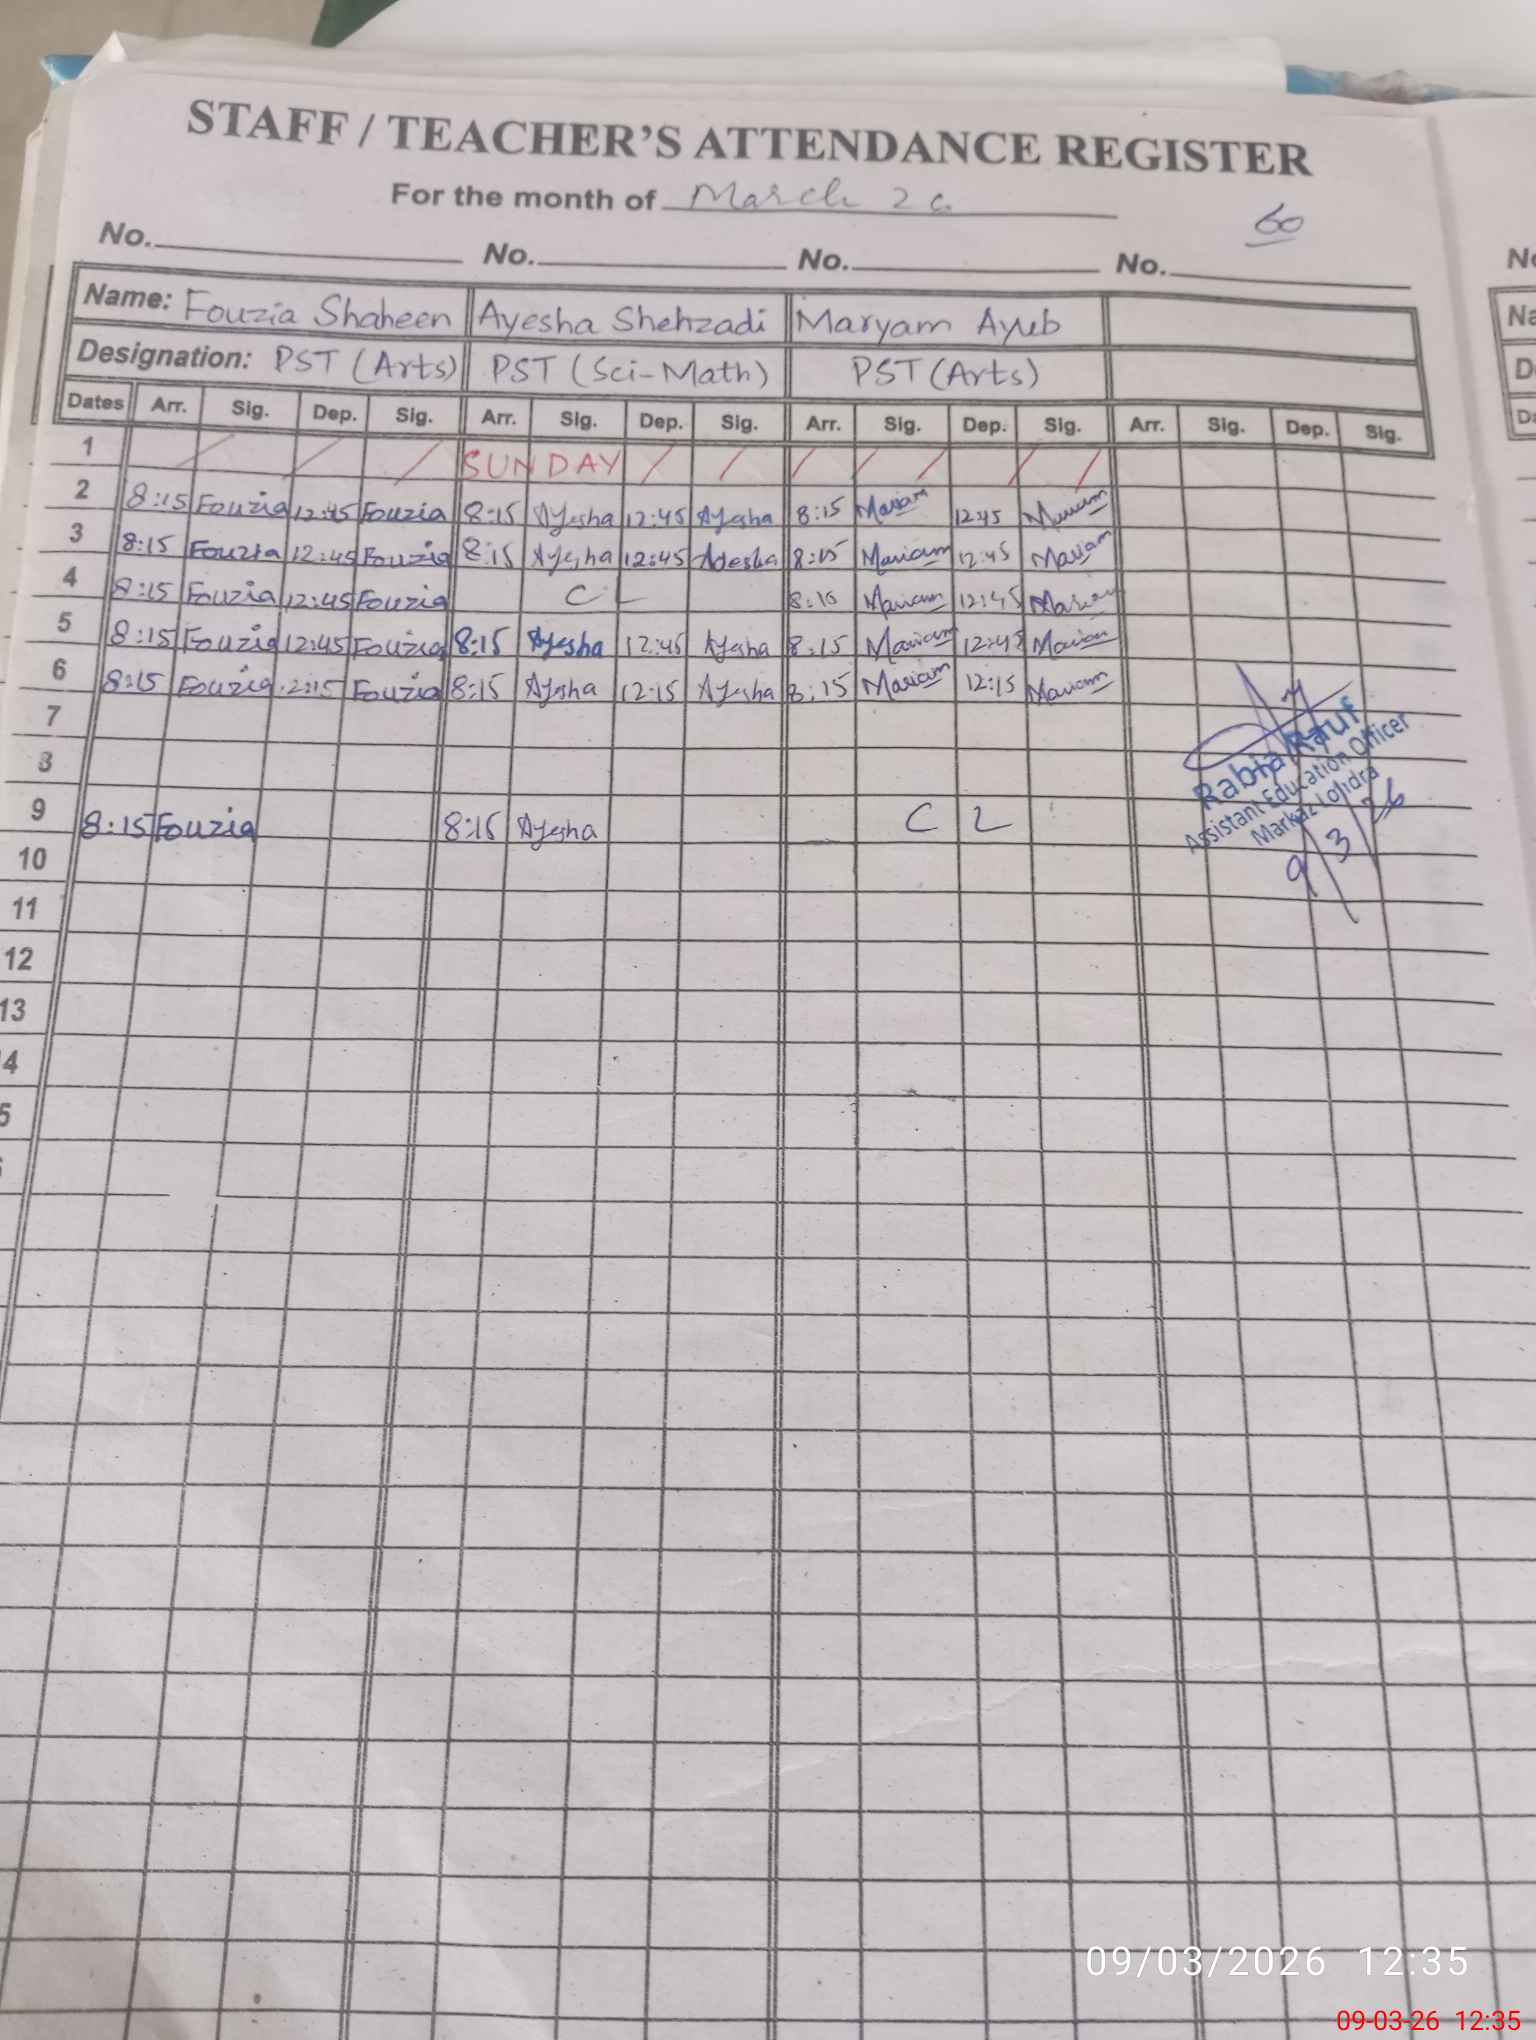 STAFF / TEACHER'S ATTENDANCE REGISTER
For the month of March 26
60
No. No. No. No.
Name: Fouzia Shaheen Ayesha Shehzadi Maryam Ayub
Designation: PST (Arts) PST (Sci-Math) PST (Arts)
Dates Arr. Sig. Dep. Sig. Arr. Sig. Dep. Sig. Arr. Sig. Dep. Sig. Arr. Sig. Dep. Sig.
1 SUNDAY
2 8:15 Fouzia 12:45 Fouzia 8:15 Ayesha 12:45 Ayesha 8:15 Mariam 12:45 Mariam
3 8:15 Fouzia 12:45 Fouzia 8:15 Ayesha 12:45 Ayesha 8:15 Mariam 12:45 Mariam
4 8:15 Fouzia 12:45 Fouzia C L 8:15 Mariam 12:45 Mariam
5 8:15 Fouzia 12:45 Fouzia 8:15 Ayesha 12:45 Ayesha 8:15 Mariam 12:45 Mariam
6 8:15 Fouzia 12:15 Fouzia 8:15 Ayesha 12:15 Ayesha 8:15 Mariam 12:15 Mariam
7
8
9 8:15 Fouzia 8:15 Ayesha C L
Rabia Rauf
Assistant Education Officer
Markaz Lojidra
9/3/26
10
11
12
13
4
5
09/03/2026 12:35
09-03-26 12:35